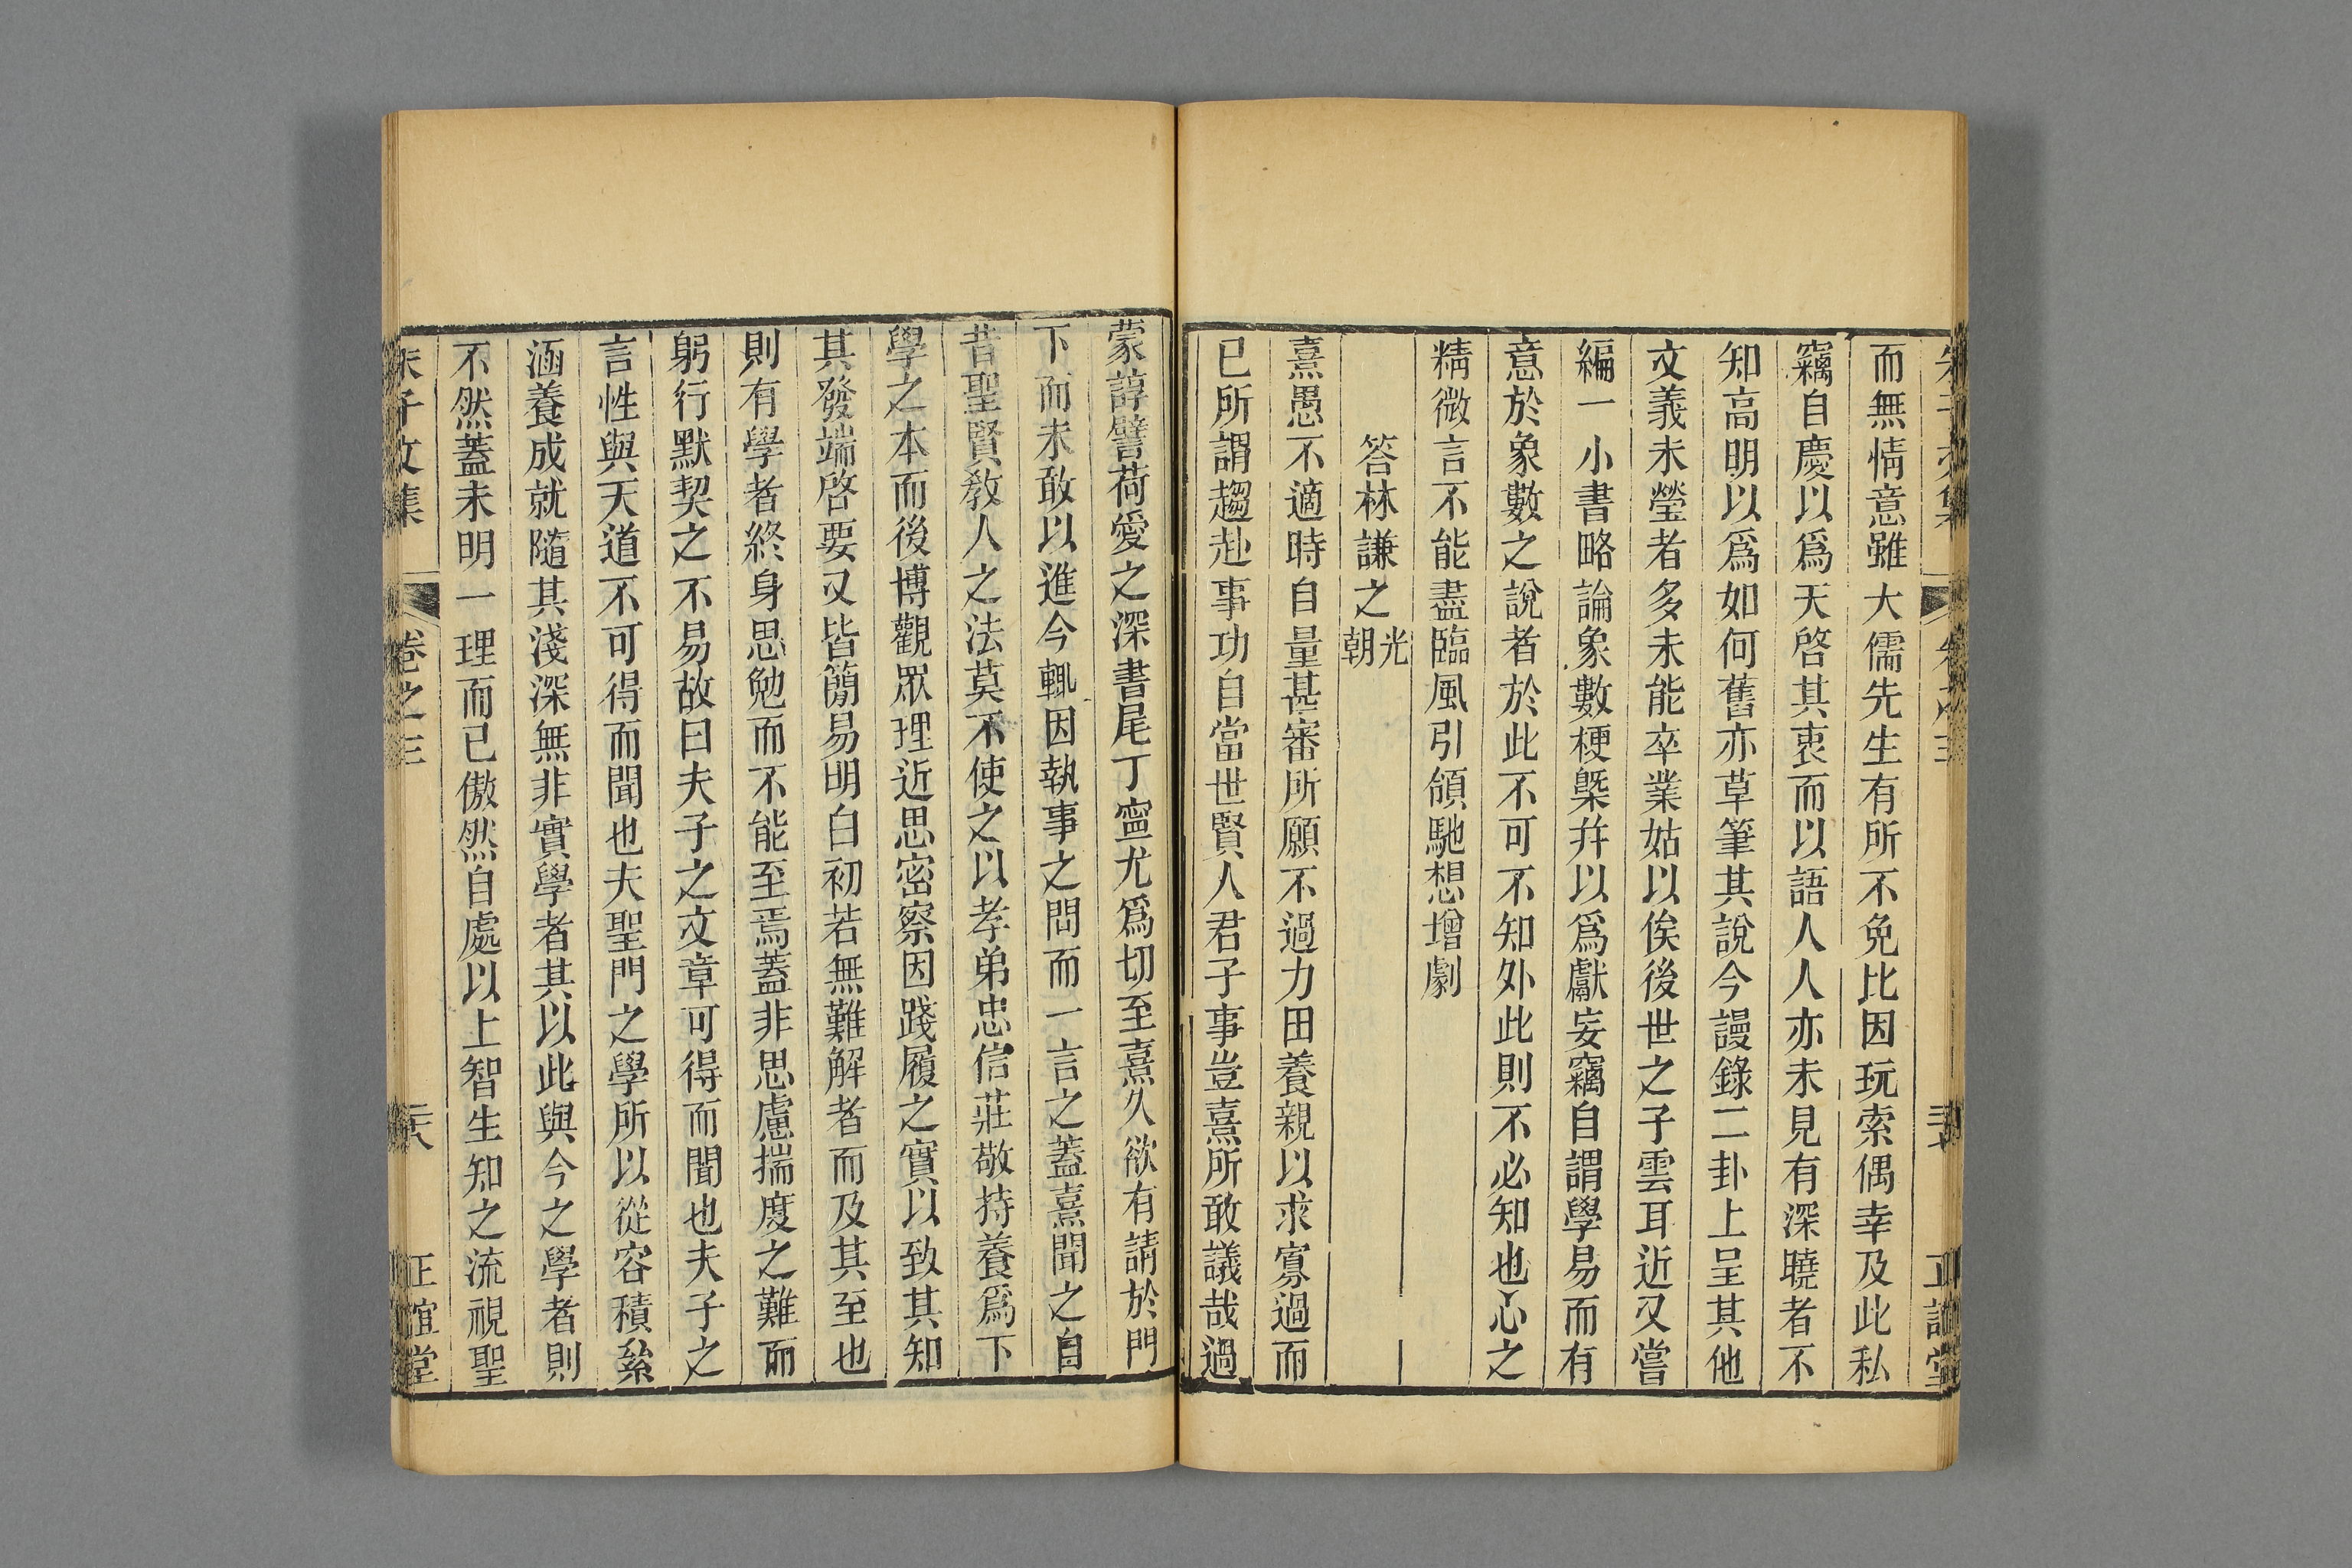 而無情意雖大儒先生有所不免比因玩索偶幸及此私
竊自慶以爲天啓其衷而以語人人亦未見有深曉者不
知高明以爲如何舊亦草筆其說今謾錄二卦上呈其他
文義未瑩者多未能卒業姑以俟後世之子雲耳近又嘗
編一小書略論象數梗槩并以爲獻妄竊自謂學易而有
意於象數之說者於此不可不知外此則不必知也心之
精微言不能盡臨風引領馳想增劇
答林謙之光朝
熹愚不適時自量甚審所願不過力田養親以求寡過而
已所謂趨赴事功自當世賢人君子事豈熹所敢議哉過
蒙諄譬荷愛之深書尾丁寧尤爲切至熹久欲有請於門
下而未敢以進今輒因執事之問而一言之蓋熹聞之自
昔聖賢敎人之法莫不使之以孝弟忠信莊敬持養爲下
學之本而後博觀眾理近思密察因踐履之實以致其知
其發端啓要又皆簡易明白初若無難解者而及其至也
則有學者終身思勉而不能至焉蓋非思慮揣度之難而
躬行默契之不易故曰夫子之文章可得而聞也夫子之
言性與天道不可得而聞也夫聖門之學所以從容積絫
涵養成就隨其淺深無非實學者其以此與今之學者則
不然蓋未明一理而已傲然自處以上智生知之流視聖
朱子文集 卷之三 三六 正誼堂